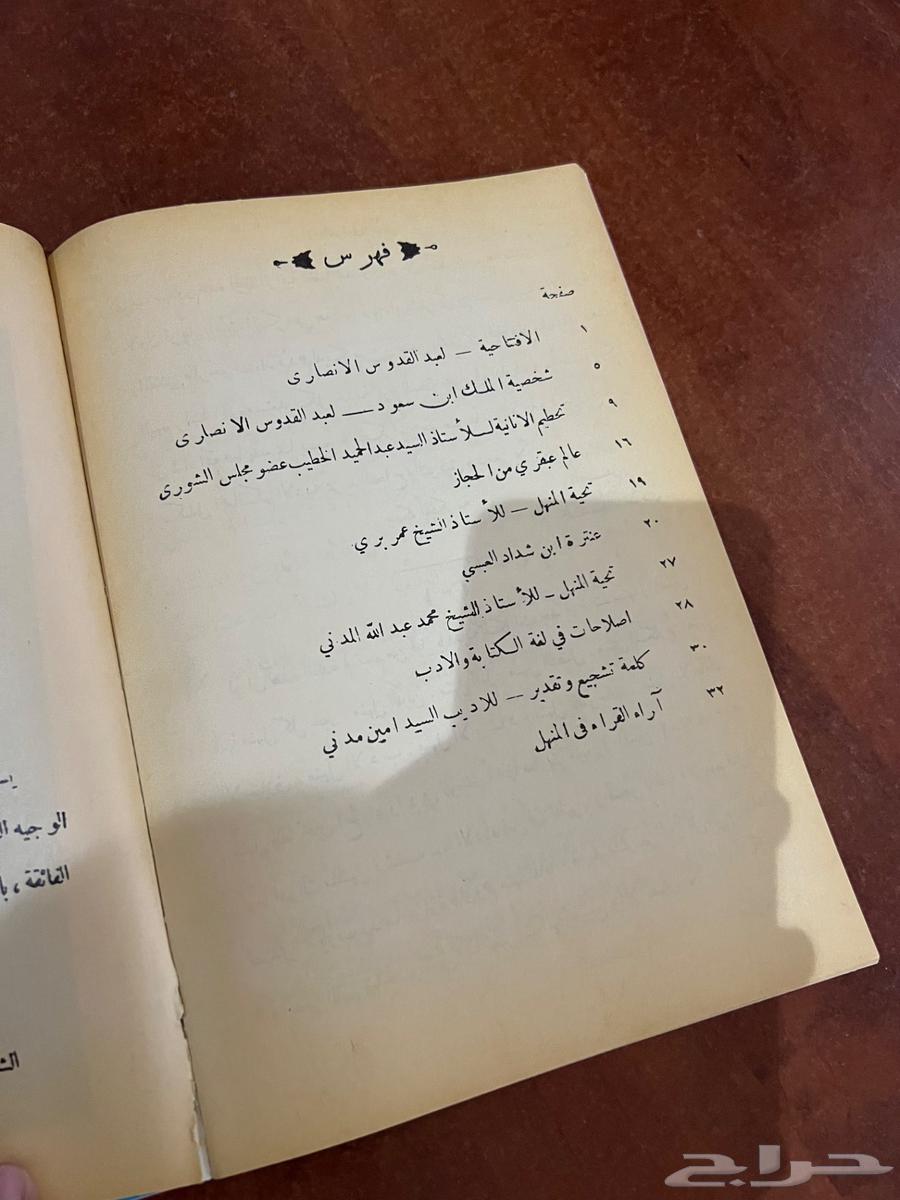 فهرس
صفحة
١ الافتتاحية — لعبد القدوس الانصارى
٥ شخصية الملك ابن سعود — لعبد القدوس الانصارى
٩ تحطيم الانانية للأستاذ السيد عبد الحميد الخطيب عضو مجلس الشورى
١٦ عالم عبقري من الحجاز
١٩ تحية المنهل — للأستاذ الشيخ عمر بري
٢٠ عنترة ابن شداد العبسي
٢٧ تحية المنهل — للأستاذ الشيخ محمد عبد الله المدني
٢٨ اصلاحات في لغة الكتابة والادب
٣٠ كلمة تشجيع وتقدير — للاديب السيد امين مدني
٣٢ آراء القراء فى المنهل
الوجيه
الفائقة ،
حراج